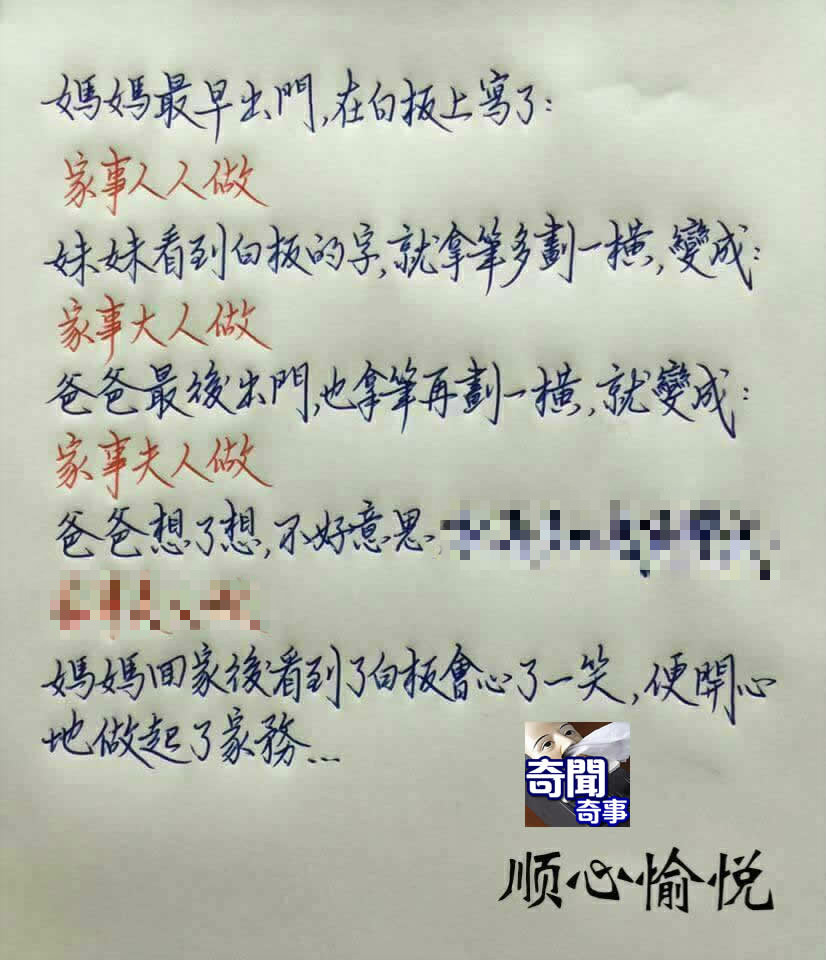 媽媽最早出門,在白板上寫了:
家事人人做
妹妹看到白板的字,就拿筆多劃一橫,變成:
家事大人做
爸爸最後出門,也拿筆再劃一橫,就變成:
家事夫人做
爸爸想了想,不好意思,
媽媽回家後看到了白板會心了一笑,便開心
地做起了家務...
奇聞
奇事
顺心愉悦